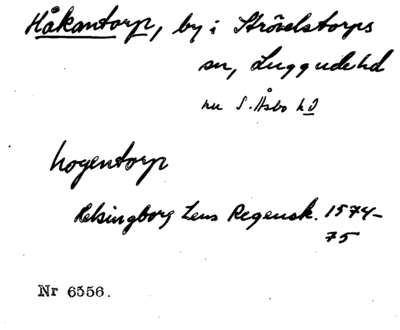 Håkantorp, by i Strövelstorps
sn, Luggudehd
nu S. Åsbo hd
hogentorp
Helsingborg Lens Regensk. 1574-
75
Nr 6556.